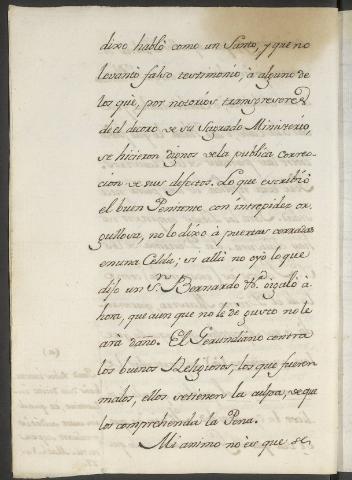 dixo habló como un Santo, y que no
levantó falso testimonio, à alguno de
los que, por notorios transgresores
de el decoro de su Sagrado Ministerio,
se hicieron dignos de la publica correc-
cion de sus defectos. Lo que escribió
el buen Penitente con intrepidez or-
gullosa, no lo dixo à puertas cerradas
en una Celda; si allà no oyò lo que
dijo un Sn. Bernardo Vd. oigalo à
hora, que aunque no le dè gusto no le
arà daño. El Gerundiano contra
los buenos Religiosos; los que fueren
malos, ellos se tienen la culpa, se que
los comprehenda la Pena.
Mi animo no es que se